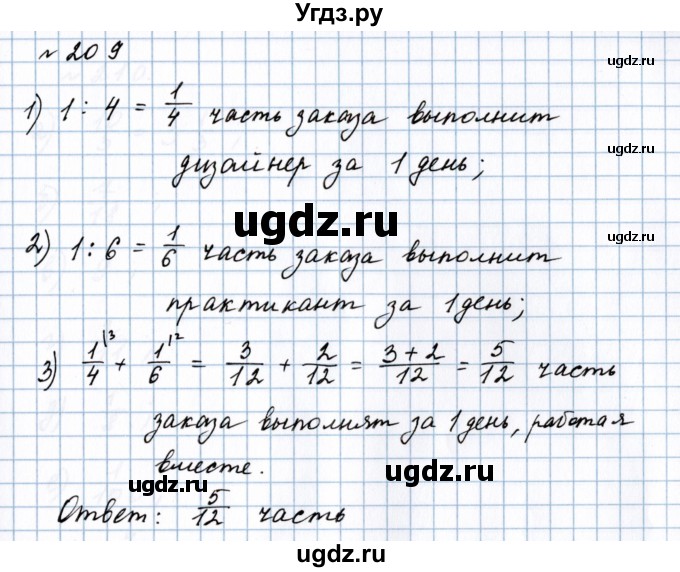 Угдз.ру
№ 209
ugdz.ru
1) 1 : 4 = 1/4 часть заказа выполнит
дизайнер за 1 день;
ugdz.ru
ugdz.ru
2) 1 : 6 = 1/6 часть заказа выполнит
ugdz.ru
практикант за 1 день;
3) 1/4 |3 + 1/6 |2 = 3/12 + 2/12 = (3 + 2)/12 = 5/12 часть
ugdz.ru
заказа выполнят за 1 день, работая
вместе.
ugdz.ru
ugdz.ru
Ответ: 5/12 часть
ugdz.ru
ugdz.ru